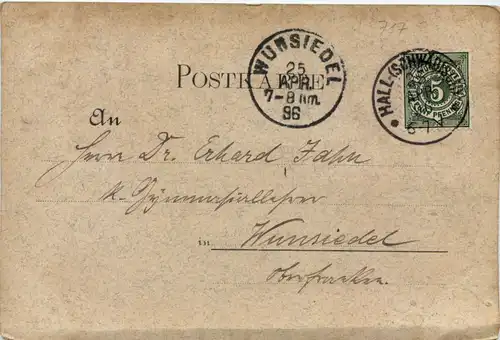 717
WUNSIEDEL
25
APR.
7-8 Nm.
96
POSTKARTE
HALL (SCHWÄB.
6-7
5
FÜNF PFENNIG
An
Herrn Dr. Erhard Jahn
k. Gymnasiallehrer
in Wunsiedel
Oberfranken.